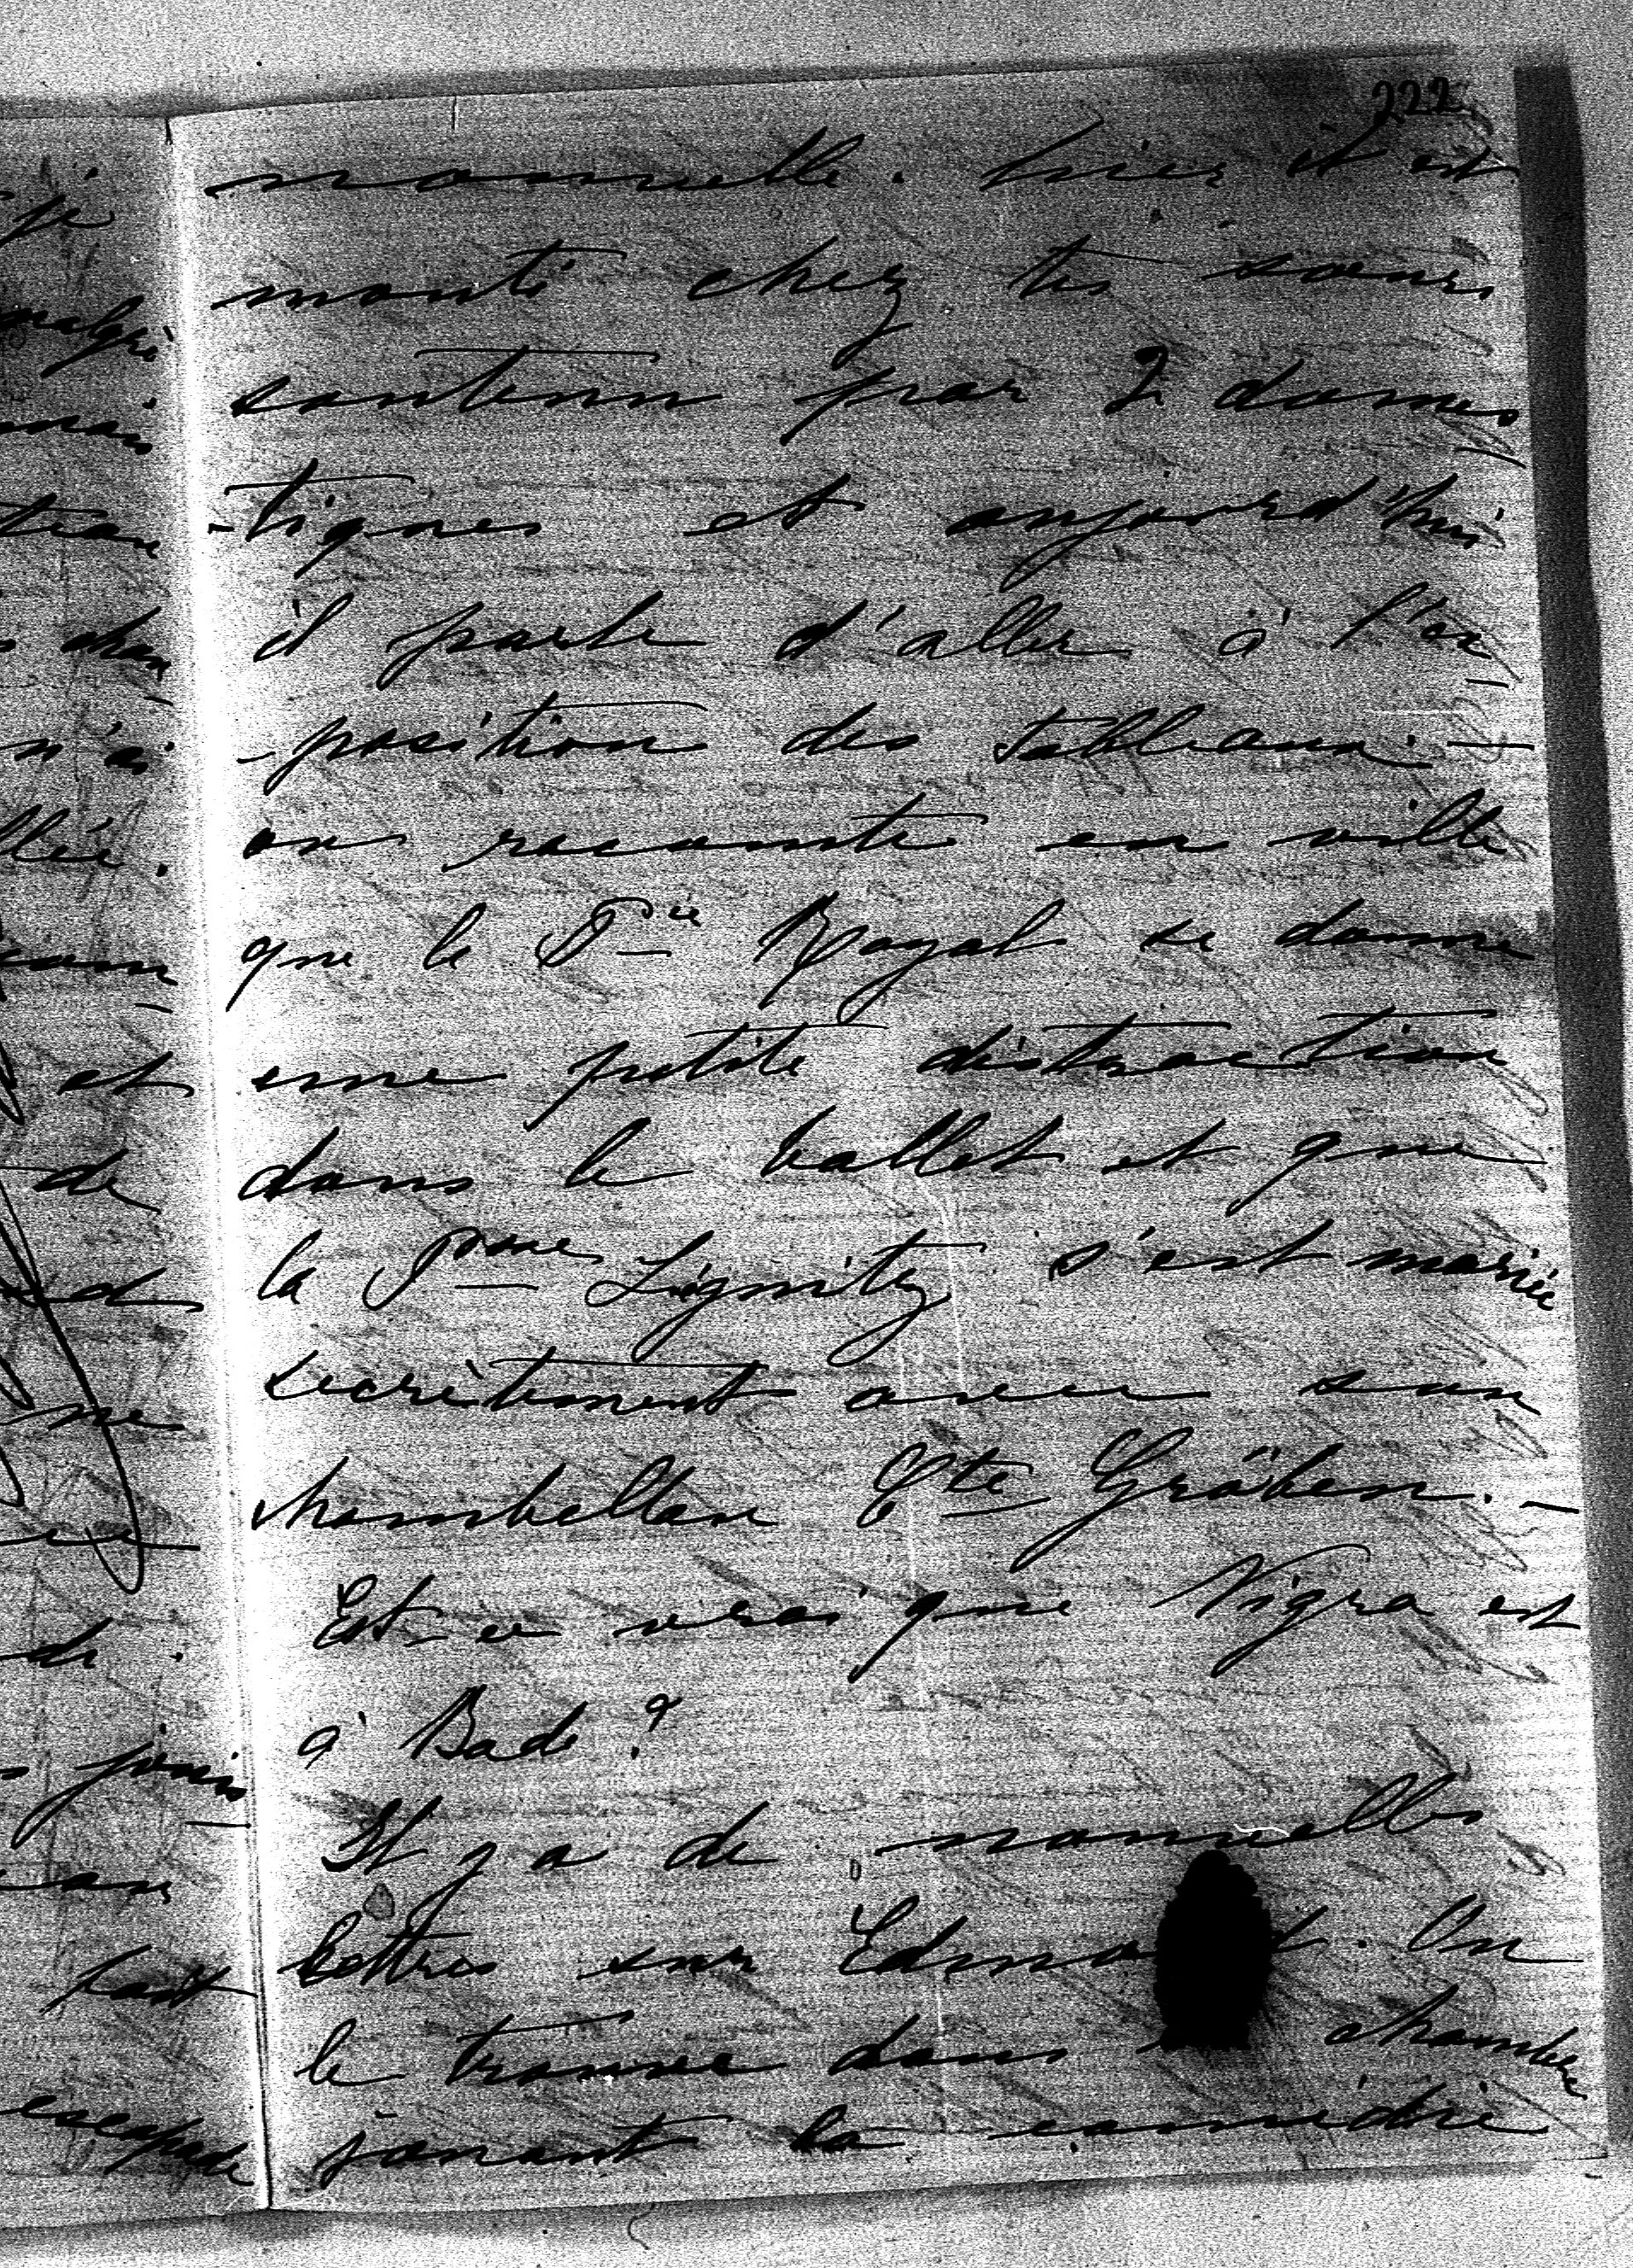 222
nouvelle. hier il est
monté chez tes sœurs
soutenu par 2 domes
-tiques et aujourd'hui
il parle d'aller à l'ex
-position des tableaux. —
on raconte en ville
que le Pce Royal se donne
une petite distraction
dans le ballet et que
la Psse Lignitz s'est mariée
secrètement avec son
chambellan Cte Gräben. —
Est-ce vrai que Nigra est
à Bade?
Il y a de nouvelles
lettres sur Edm d. On
le trouve dans chambre
jouant la comédie